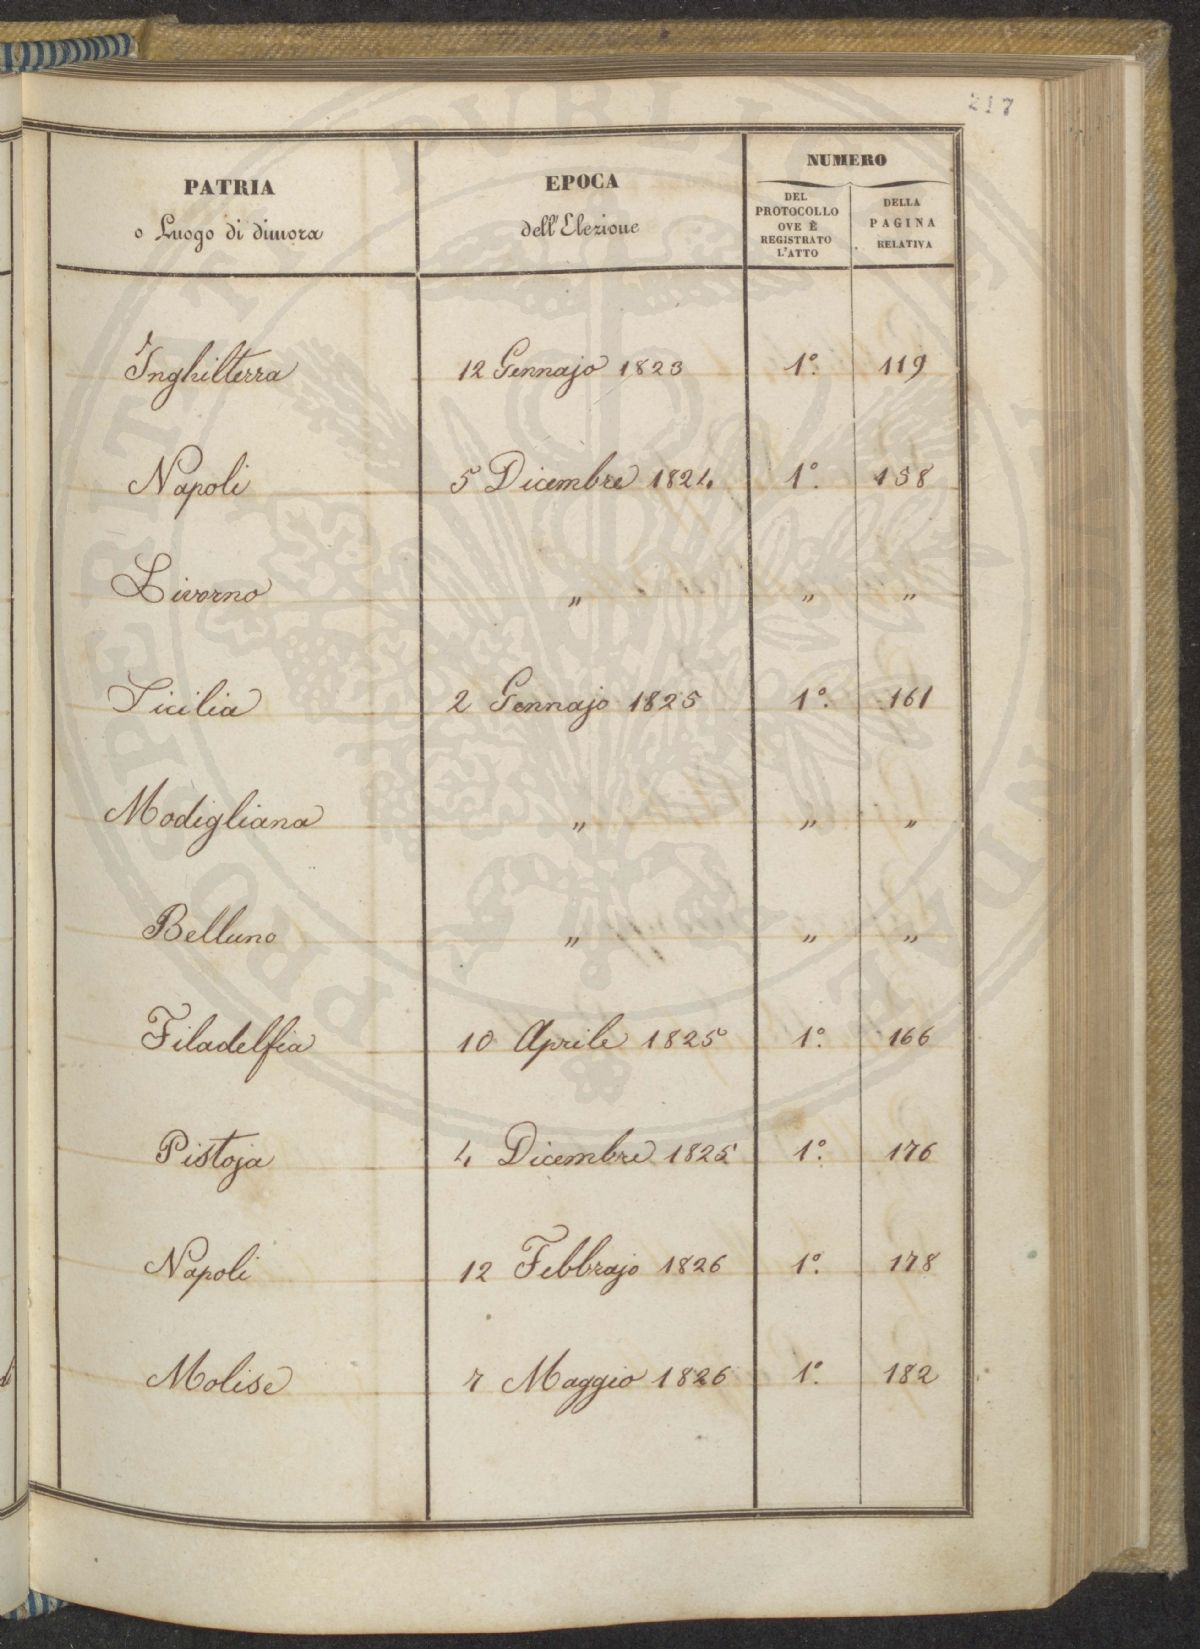 217
PATRIA
o Luogo di dimora
EPOCA
dell'Elezione
NUMERO
DEL
PROTOCOLLO
OVE È
REGISTRATO
L'ATTO
DELLA
PAGINA
RELATIVA
Inghilterra 12 Gennajo 1823 1°. 119
Napoli 5 Dicembre 1824 1°. 158
Livorno " " "
Sicilia 2 Gennajo 1825 1°. 161
Modigliana " " "
Belluno " " "
Filadelfia 10 Aprile 1825 1°. 166
Pistoja 4 Dicembre 1825 1°. 176
Napoli 12 Febbrajo 1826 1°. 178
Molise 7 Maggio 1826 1°. 182